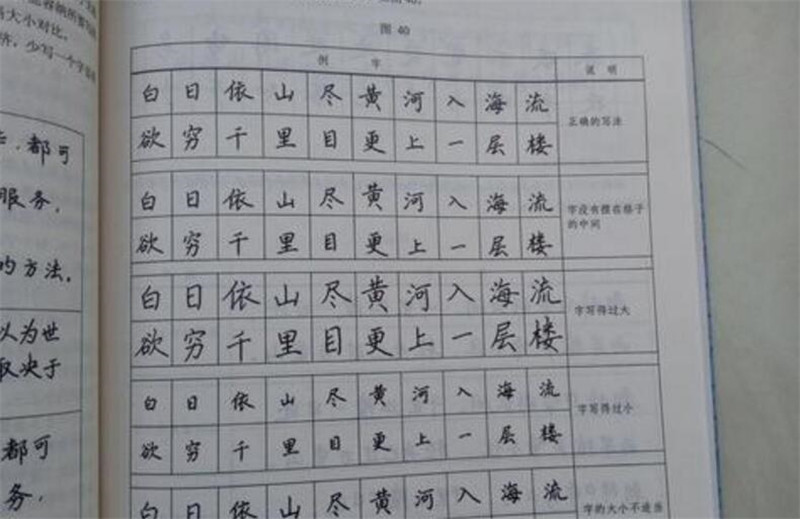 大小对比。
济，少写一个字
都可
服务，
的方法。
以为世
取决于
都可
务，
图 40
例 字 说 明
白日依山尽黄河入海流
欲穷千里目更上一层楼
正确的写法
白日依山尽黄河入海流
欲穷千里目更上一层楼
字没有摆在格子
的中间
白日依山尽黄河入海流
欲穷千里目更上一层楼
字写得过大
白日依山尽黄河入海流
欲穷千里目更上一层楼
字写得过小
白日依山尽黄河入海流
字的大小不适当